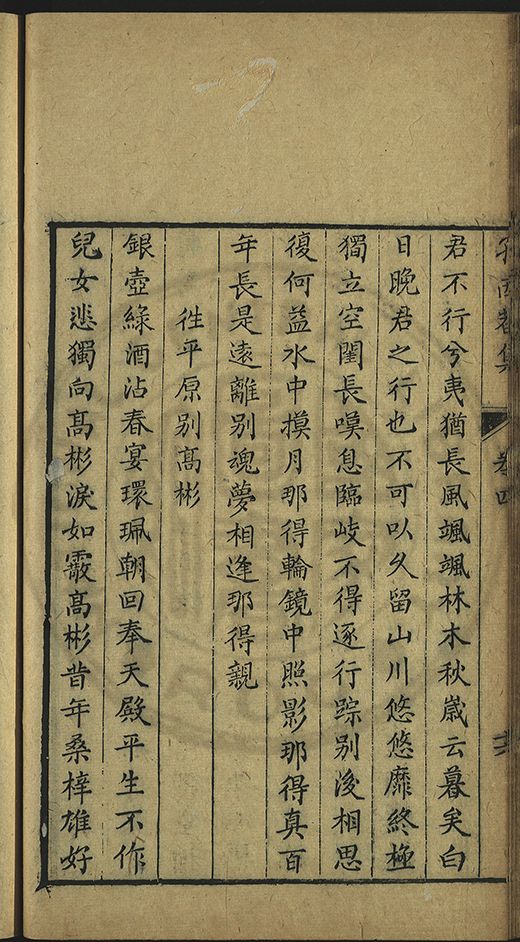 君不行兮夷猶長風颯颯林木秋歲云暮矣白
日晚君之行也不可以久留山川悠悠靡終極
獨立空閨長嘆息臨岐不得逐行踪別後相思
復何益水中摸月那得輪鏡中照影那得真百
年長是遠離別魂夢相逢那得親
往平原別高彬
銀壺綠酒沾春宴環珮朝回奉天殿平生不作
兒女悲獨向高彬淚如霰高彬昔年桑梓雄好